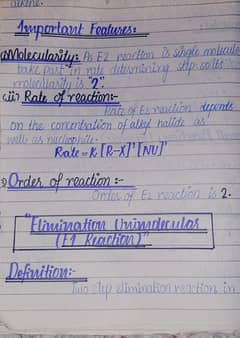 alkene.
Important Features:
(i) Molecularity: As E2 reaction is single molecule
take part in rate determining step so its
molecularity is "2".
(ii) Rate of reaction:-
Rate of E2 reaction depends
on the concentration of alkyl halide as
well as nucleophile.
Rate = K [R-X]' [NU]'
Order of reaction :-
Order of E2 reaction is 2.
"Elimination Unimolecular
(E1 Reaction)"
Definition:-
Two step elimination reaction in